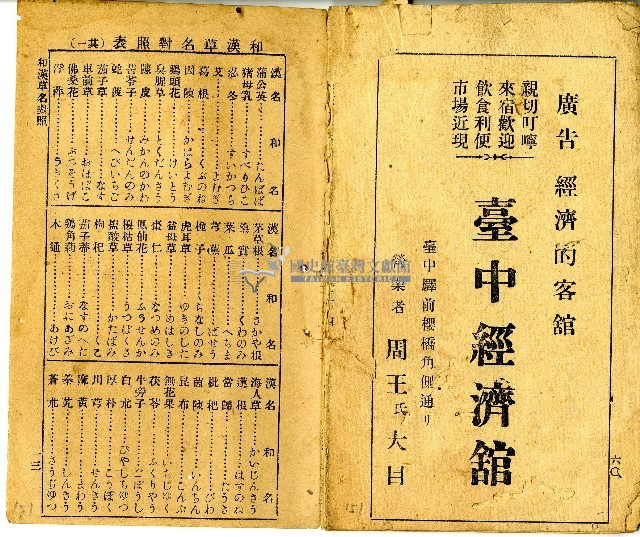 廣告 經濟的客舘
親切叮嚀
來宿歡迎
飲食利便
市場近現
臺中經濟舘
臺中驛前櫻橋角側通リ
營業者 周王氏大目
六〇
和漢草名對照表（其一）
漢名 和名
蒲公英 たんぽぽ
猪母乳 すべりひこ
忍冬 すいかつら
艾 よもぎ
葛根 くづのね
因陳 かはらよもぎ
鷄頭花 けいとう
臭腥草 どくだんさう
陳皮 みかんのかわ
苦苓子 せんだんのみ
蛇波 へびいちご
茄子草 なす
車前草 おほばこ
佛桑花 ぶつそうげ
浮萍 うきくさ
漢名 和名
茅草根 さかや根
桑實 くわのみ
菜瓜 へちま
芎蕉 ばせう
梔子 くちなしのみ
虎耳草 ゆきのした
益母草 めはじき
棗仁 なつめのみ
鳳仙花 ふうせんか
夏枯草 うつぼくさ
鹽酸草 かたばみ
枸杞 くこ
茄子蒂 なすのへた
鷄角莿 おにあざみ
木通 あけび
漢名 和名
海人草 かいじんさう
蓮根 はすのね
當歸 たうき
枇杷 びわ
茵陳 いんちん
昆布 こんぶ
無花果 いちじゆく
茯苓 ふくりやう
牛旁子 ごぼうし
白朮 びやくじゆつ
厚朴 こうぼく
川芎 せんきう
硫黃 いわう
蒼朮 さうじゆつ
和漢草名對照
三一
國史館臺灣文獻館
TAIWAN HISTORICA
151
151